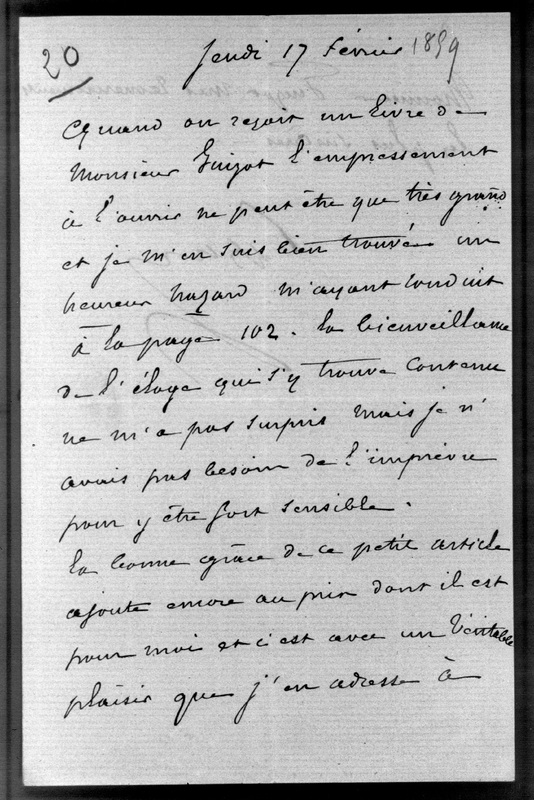 20
Jeudi 17 février 1859
Quand on reçoit un livre de
Monsieur Guizot l'empressement
à l'ouvrir ne peut être que très grand
et je m'en suis bien trouvée un
heureux hazard m'ayant conduit
à la page 102. La bienveillance
de l'éloge qui s'y trouve contenu
ne m'a pas surpris mais je n'
avais pas besoin de l'imprévu
pour y être fort sensible.
La bonne grâce de ce petit article
ajoute encore au prix dont il est
pour moi et c'est avec un véritable
plaisir que j'en adresse à